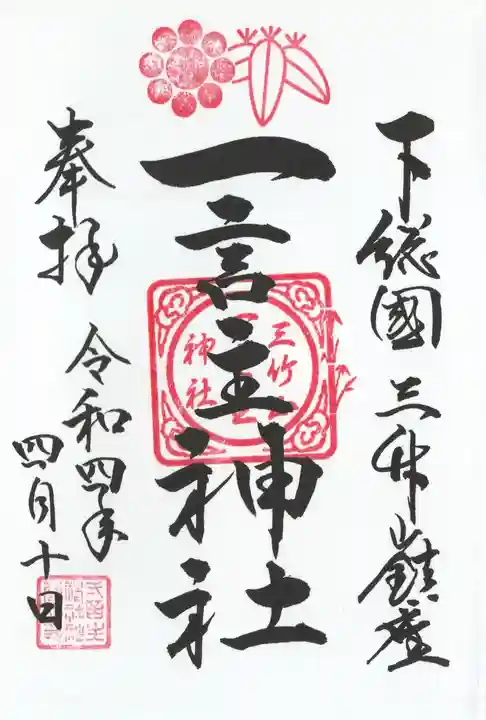 下総國 三竹山鎮座
一言主神社
奉拝 令和四年
四月十日
三竹山
神社